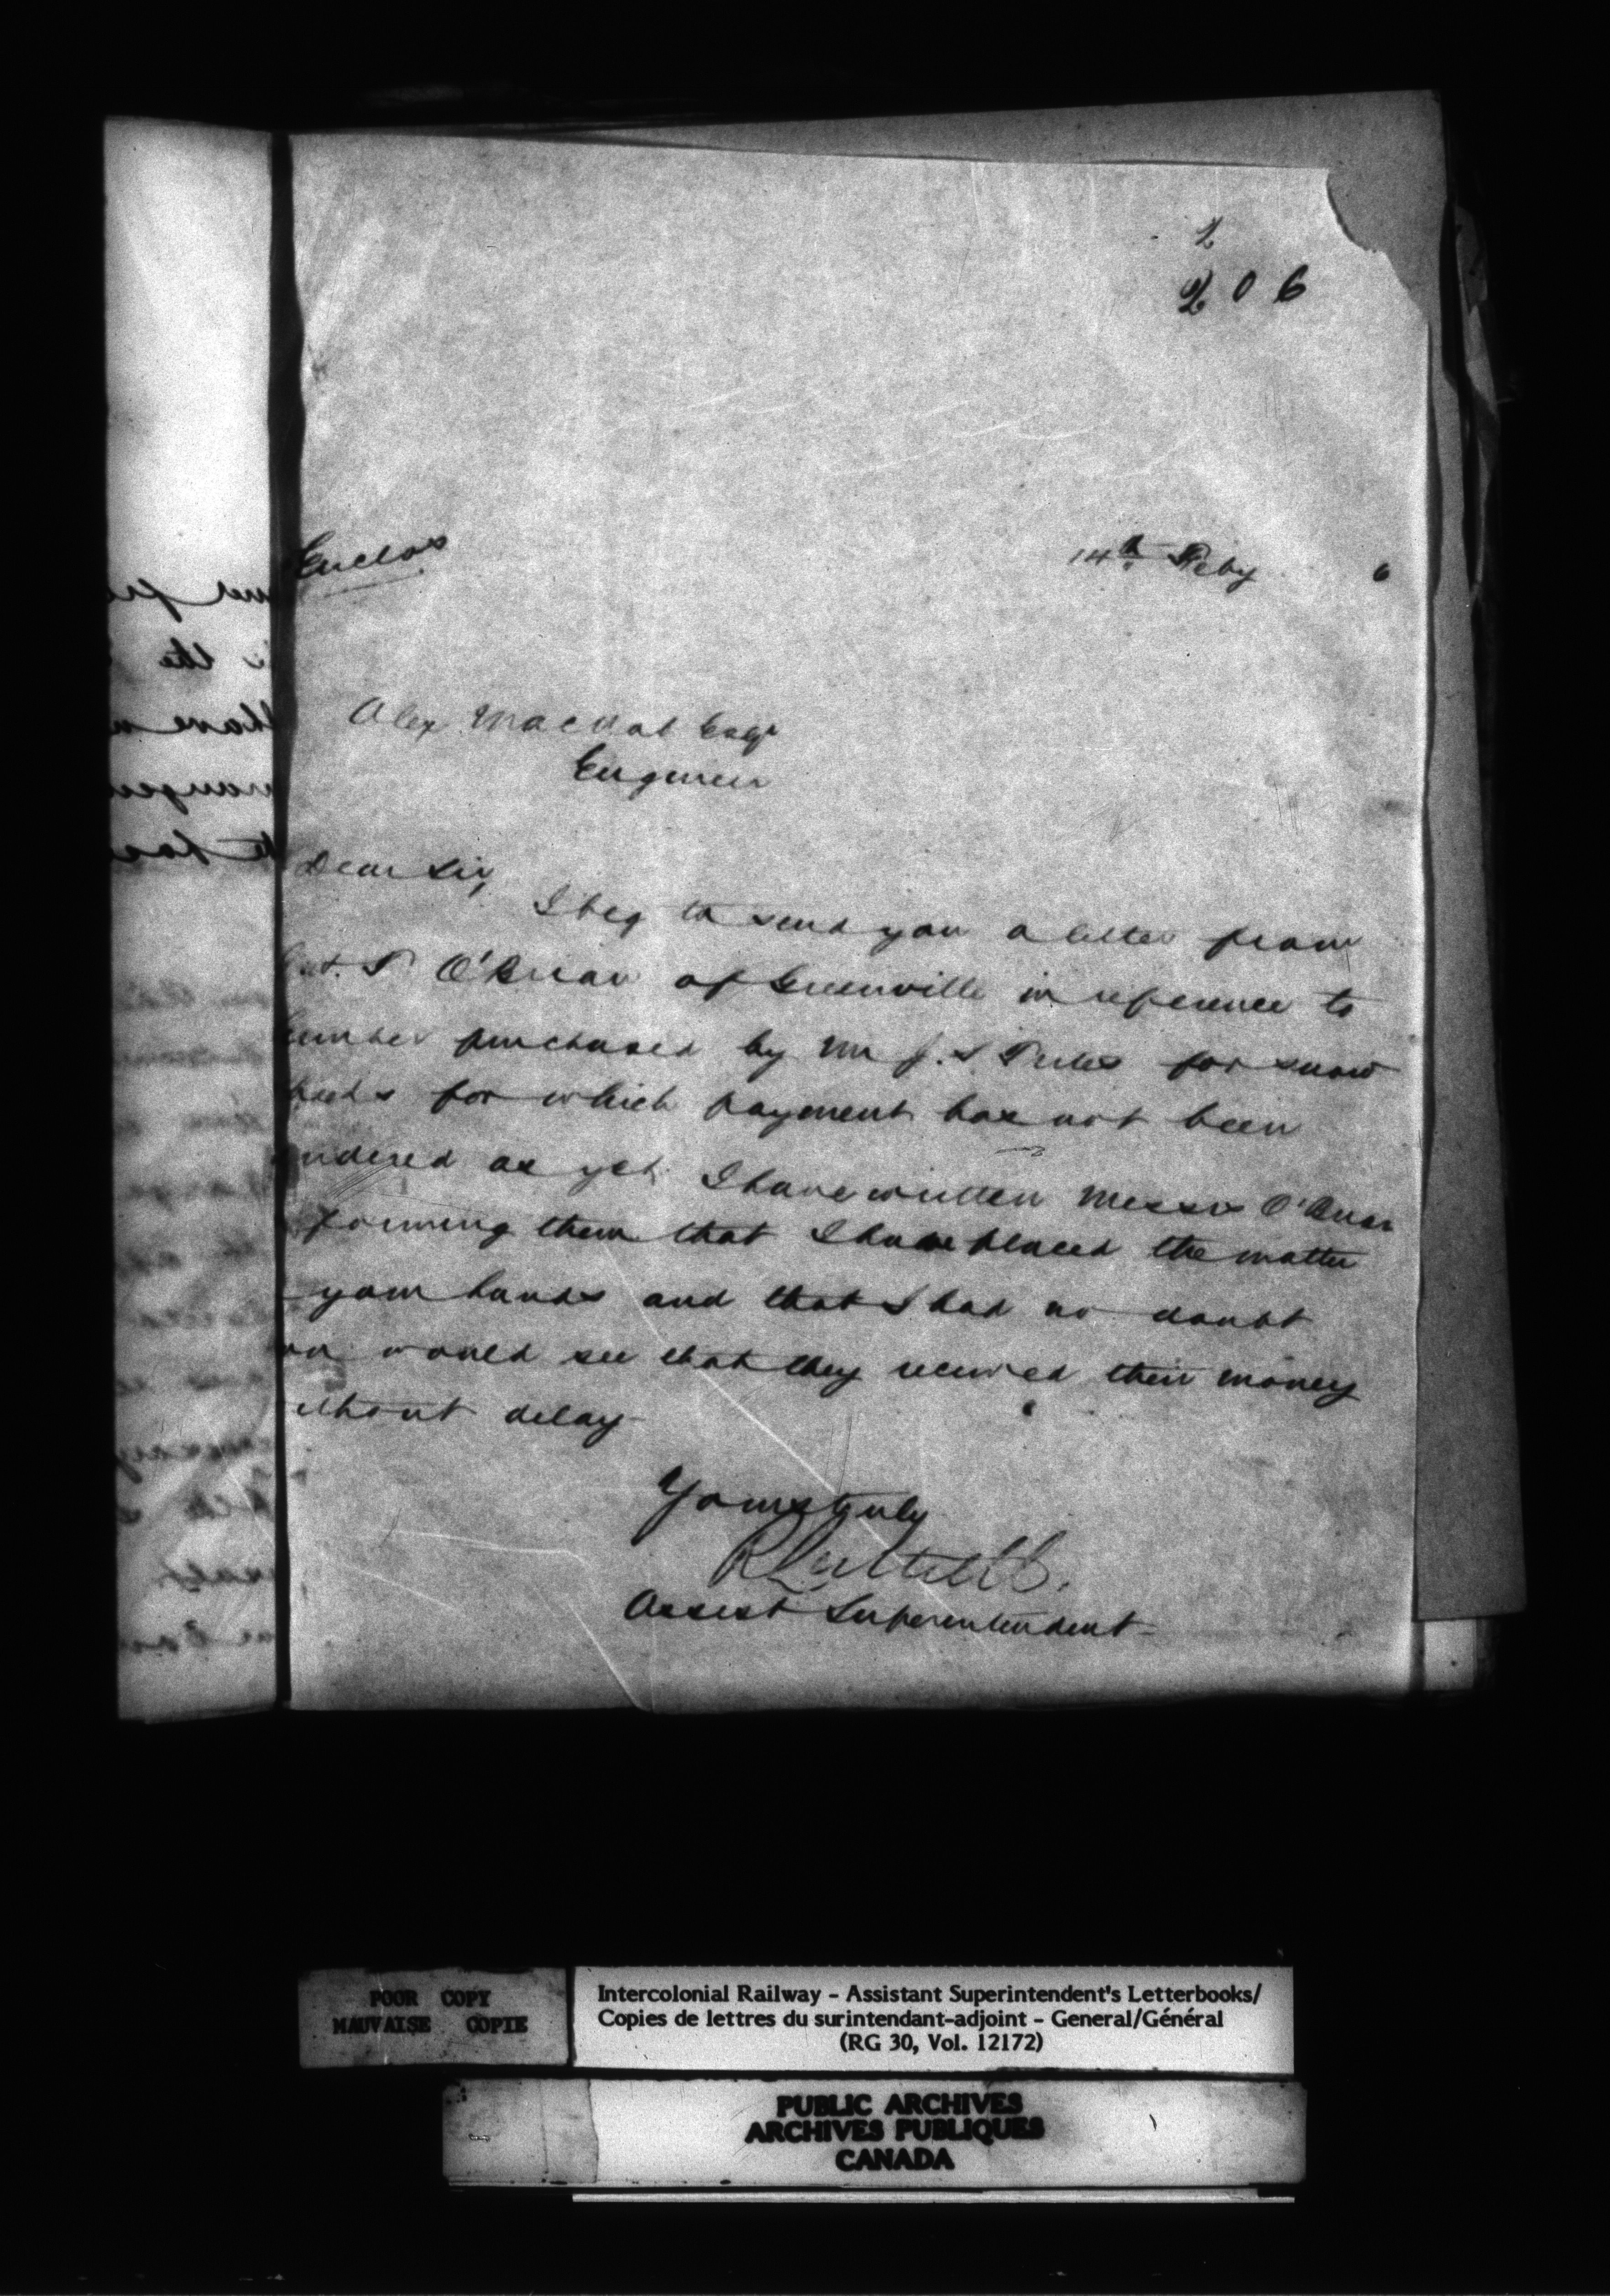 2
206
Enclos
14th Feby 6
Alex MacNab Esqr
Engineer
Dear Sir,
I beg to send you a letter from
T O'Brian of Greenville in reference to
lumber purchased by Mr J. S. for snow
sheds for which payment has not been
rendered as yet. I have written Messrs O'Brian
forming them that I have placed the matter
your hands and that I had no doubt
would see that they received their money
ithout delay
Yours truly
R Luttrell
Assist Superintendent
POOR COPY
MAUVAISE COPIE
Intercolonial Railway – Assistant Superintendent's Letterbooks/
Copies de lettres du surintendant-adjoint – General/Général
(RG 30, Vol. 12172)
PUBLIC ARCHIVES
ARCHIVES PUBLIQUES
CANADA